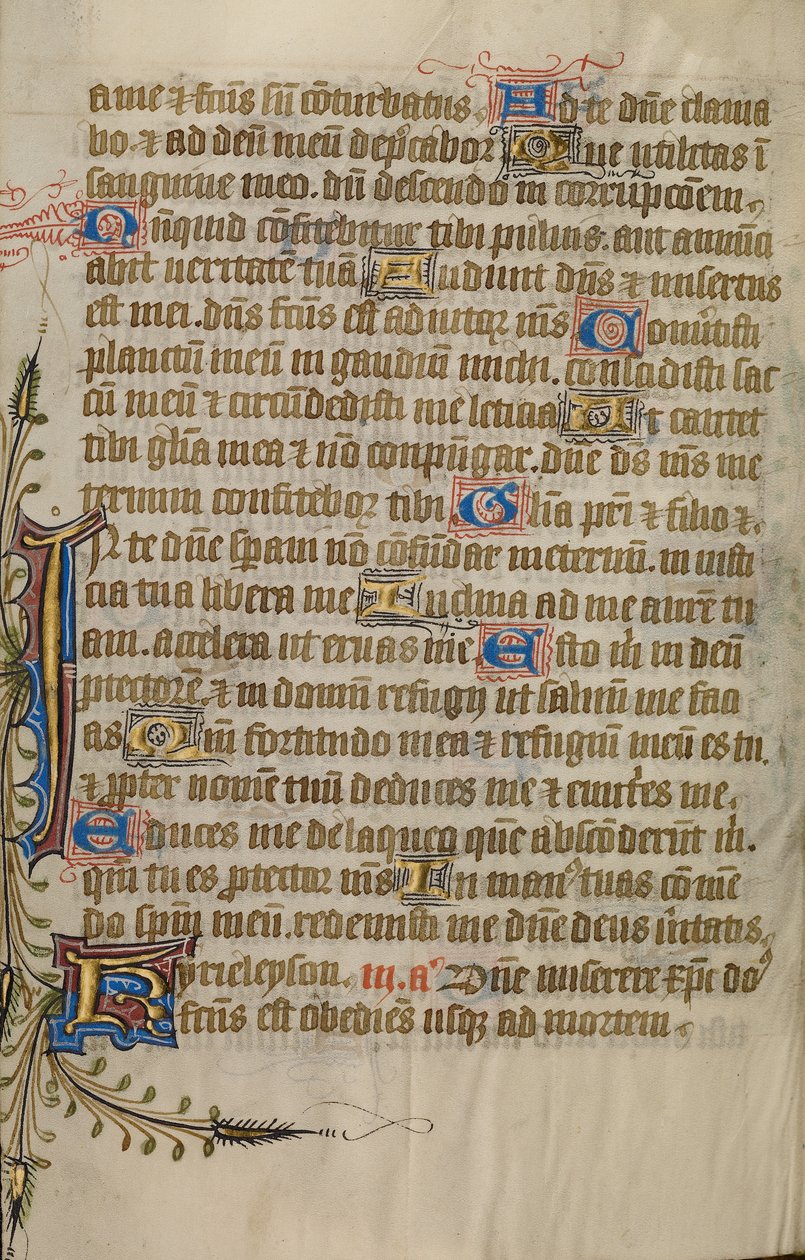 a me ⁊ fc̄us sū cōturbatus. Ad te dn̄e clama
bo. ⁊ ad deū meū dep̄cabor Que utilitas ī
sanguine meo. dū descendo in corrupcōem.
Nūquid cōfitebitur tibi puluis. aut annūci
abit ueritatē tuā Audiuit dn̄s ⁊ misertus
est mei. dn̄s fc̄us est adiutor mūs Cōuertisti
planctū meū in gaudiū michi. conscidisti sac
cū meū ⁊ circūdedisti me leticia Ut cantet
tibi gl̄ia mea ⁊ nō conpūgar. dn̄e ds̄ mūs in e
ternum confitebor tibi Gl̄ia pr̄i ⁊ filio ⁊.
IN te dn̄e sp̄aui nō cōfūdar in eternū. in iusti
cia tua libera me Inclina ad me aurē tu
am. accelera ut eruas me Esto m̄ in deū
ꝓtectorē. ⁊ in domū refugij ut saluū me faci
as Qm̄ fortitudo mea ⁊ refugiū meū es tu.
⁊ ꝓpter nomē tuū deduces me ⁊ enutries me.
Educes me de laqueo quē abscōderūt m̄.
qm̄ tu es ꝓtector mūs In manꝰ tuas cōmē
do sp̄m meū. redemisti me dn̄e deus ūitatis.
Kyrieleyson. m. aͦ Dn̄e miserere xp̄c dōꝰ
fc̄us est obediēs usq ad mortem.